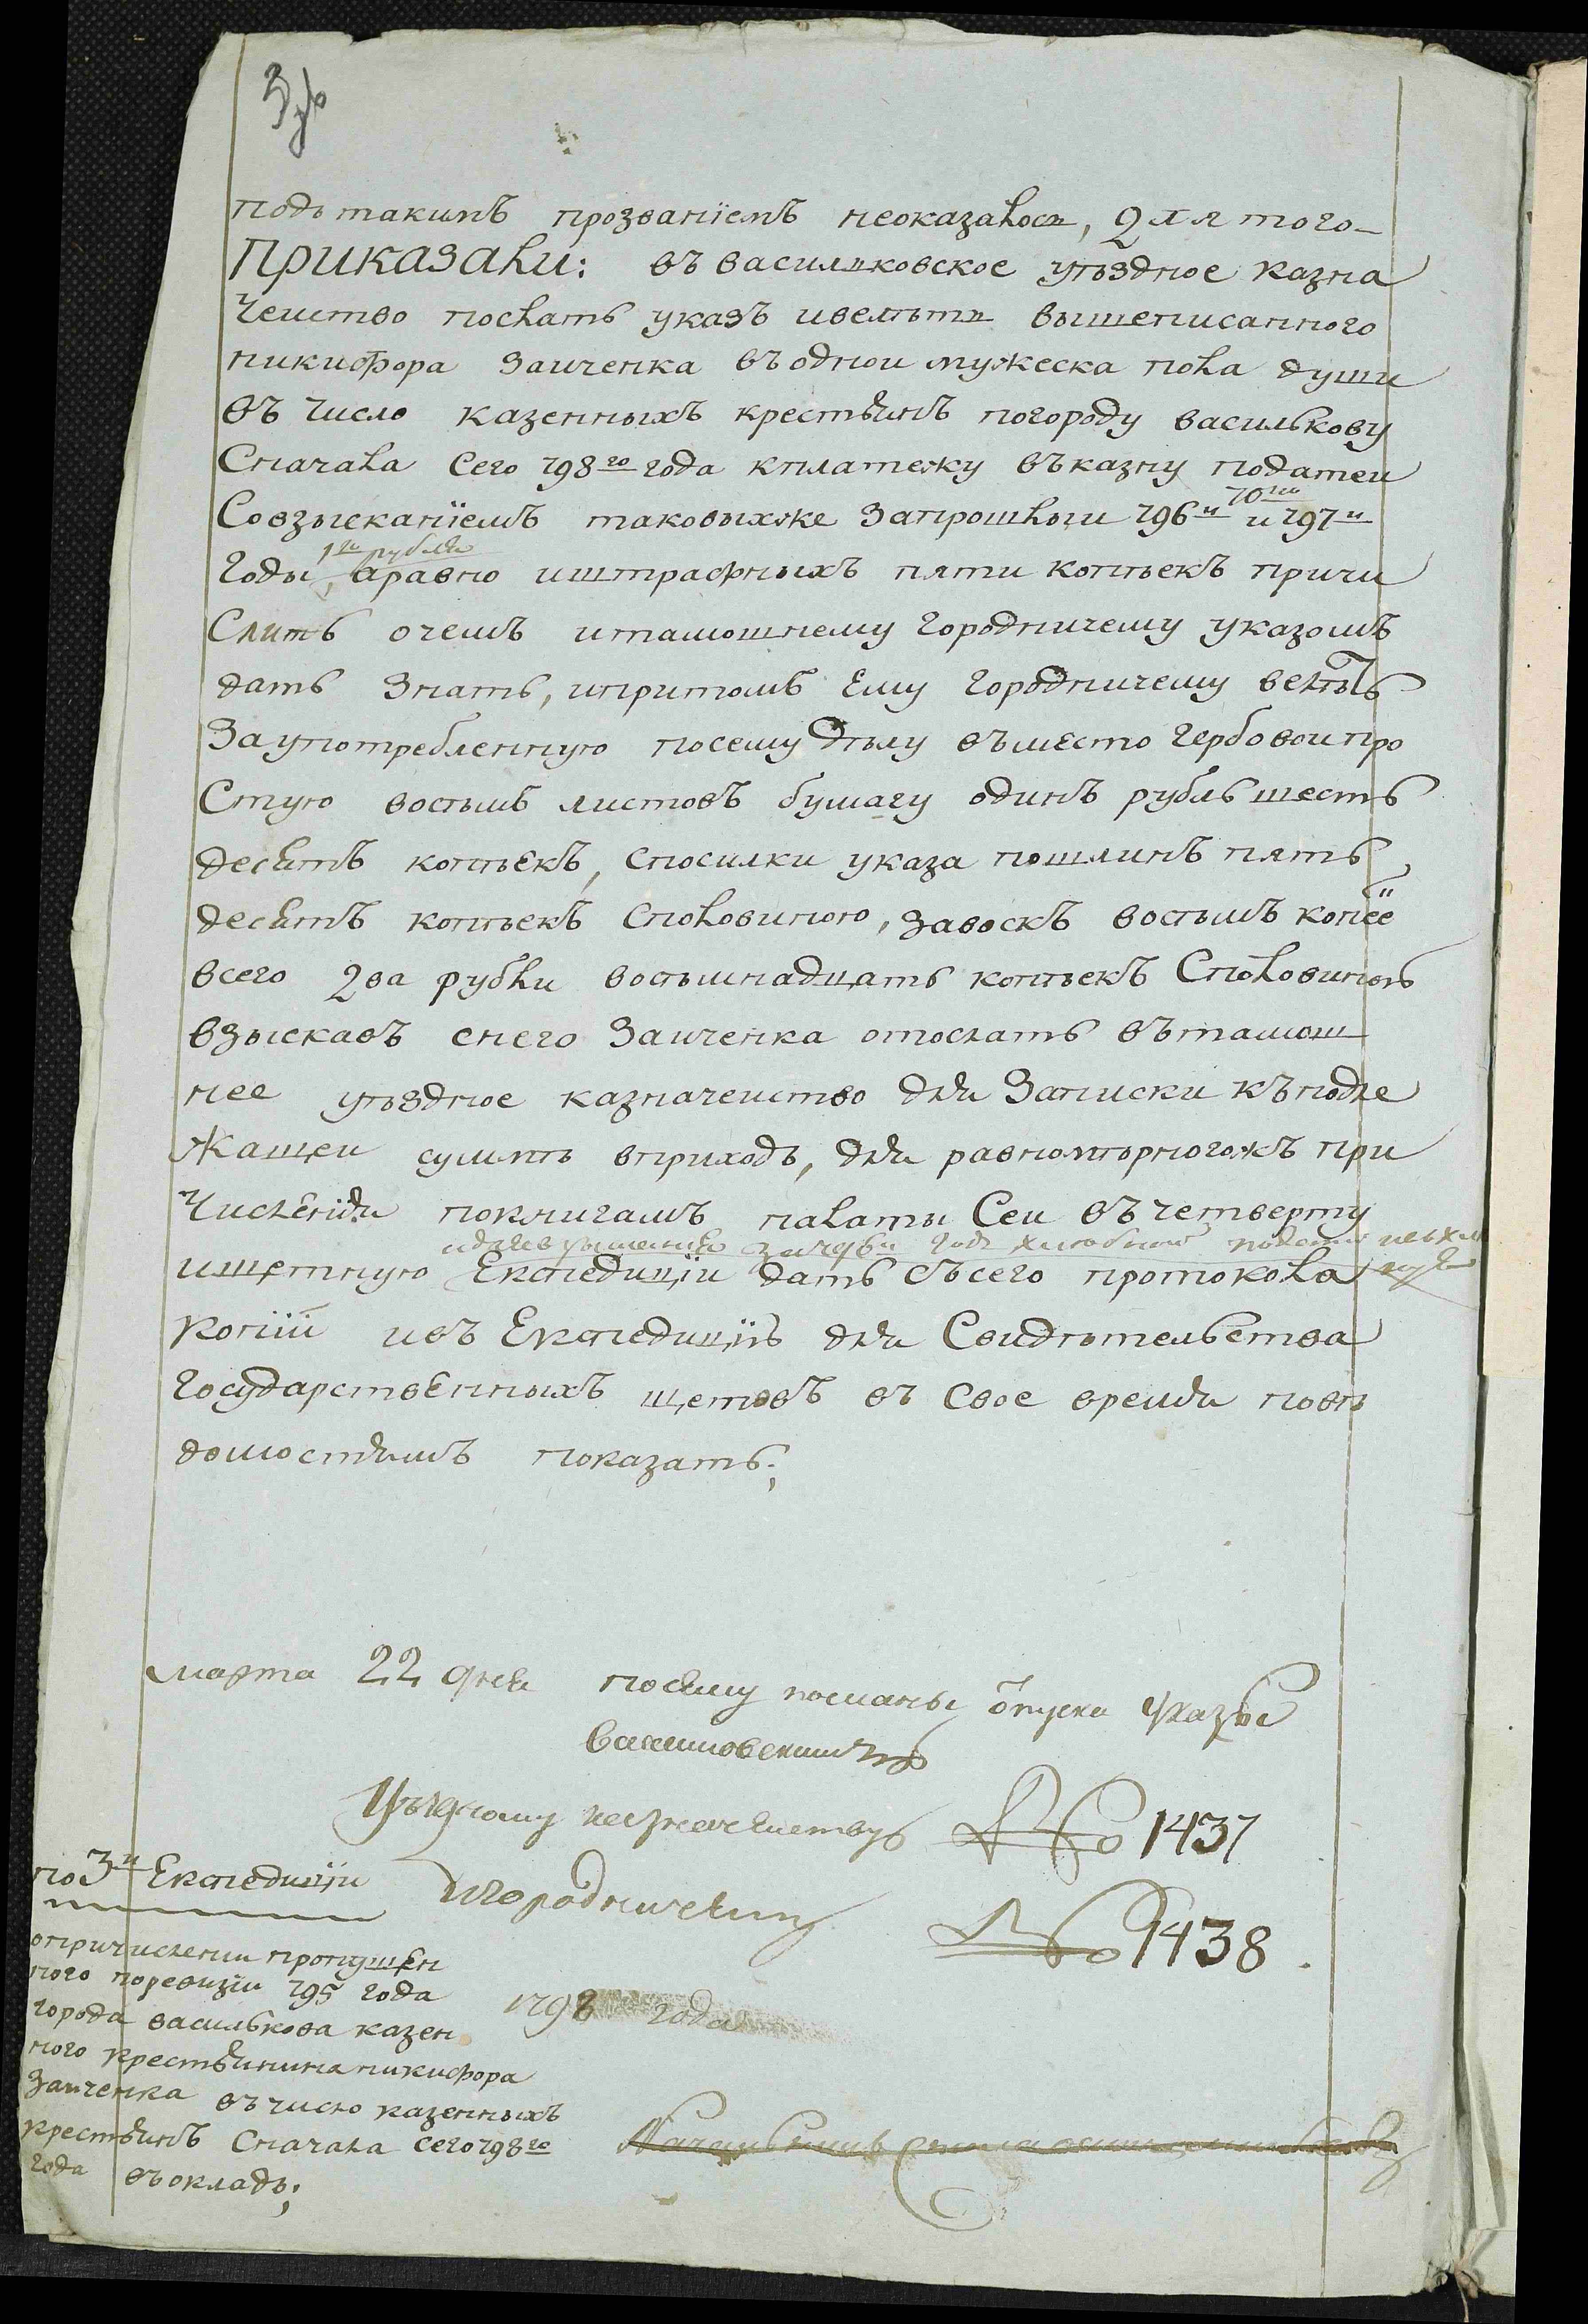 подъ такимъ прозванїемъ неоказалось, для того
Приказали: въ васильковское уѣздное казна
чеиство послать указъ ивелѣть вышеписанного
никифора Заиченка въ однои мужеска пола души
въ число казенныхъ крестьянъ погороду василькову
Сначала Сего 798го года кплатежу въказну податеи
Совзысканїемъ таковыхже Запрошлыи 796и и 797и
1го рубля 70ти
Годы, аравно иштрафныхъ пяти копѣекъ причи
Слить очемъ итамошнему Городничему указомъ
дать Знать, ипритомъ Ему Городничему велѣть
Заупотребленную посему дѣлу въместо Гербовои про
Стую восьмъ листовъ бумагу одинъ рубль шесть
десятъ копѣекъ, спосилки указа пошлинъ пять
десятъ копѣекъ Споловиною, завоскъ восьмъ копее
всего два рубли восьмнадцать копѣекъ Споловиною
взыскавъ снего Заиченка отослать въ тамош
нее уѣздное казначеиство для Записки къ подле
жащеи суммѣ вприходъ, для равномѣрногожъ при
Численїя покнигамъ палаты Сеи въ четверту
ищетную Експедицїи дать съсего протокола
копїи ивъ Експедицїю для Свидѣтельства
Государственныхъ щетовъ въ Свое время повѣ
домостямъ показать;
марта 22 дня посему посланы отпуска указы
Уѣздному казначеиству № 1437
игородничему № 1438.
по 3и Експедицїи
опричислении пропущен
ного поревизїи 795 года
города василькова казен
ного крестьянина никифора
Заиченка въ число казенныхъ
крестьянъ Сначала сего 798го
года въокладъ;
1798 года